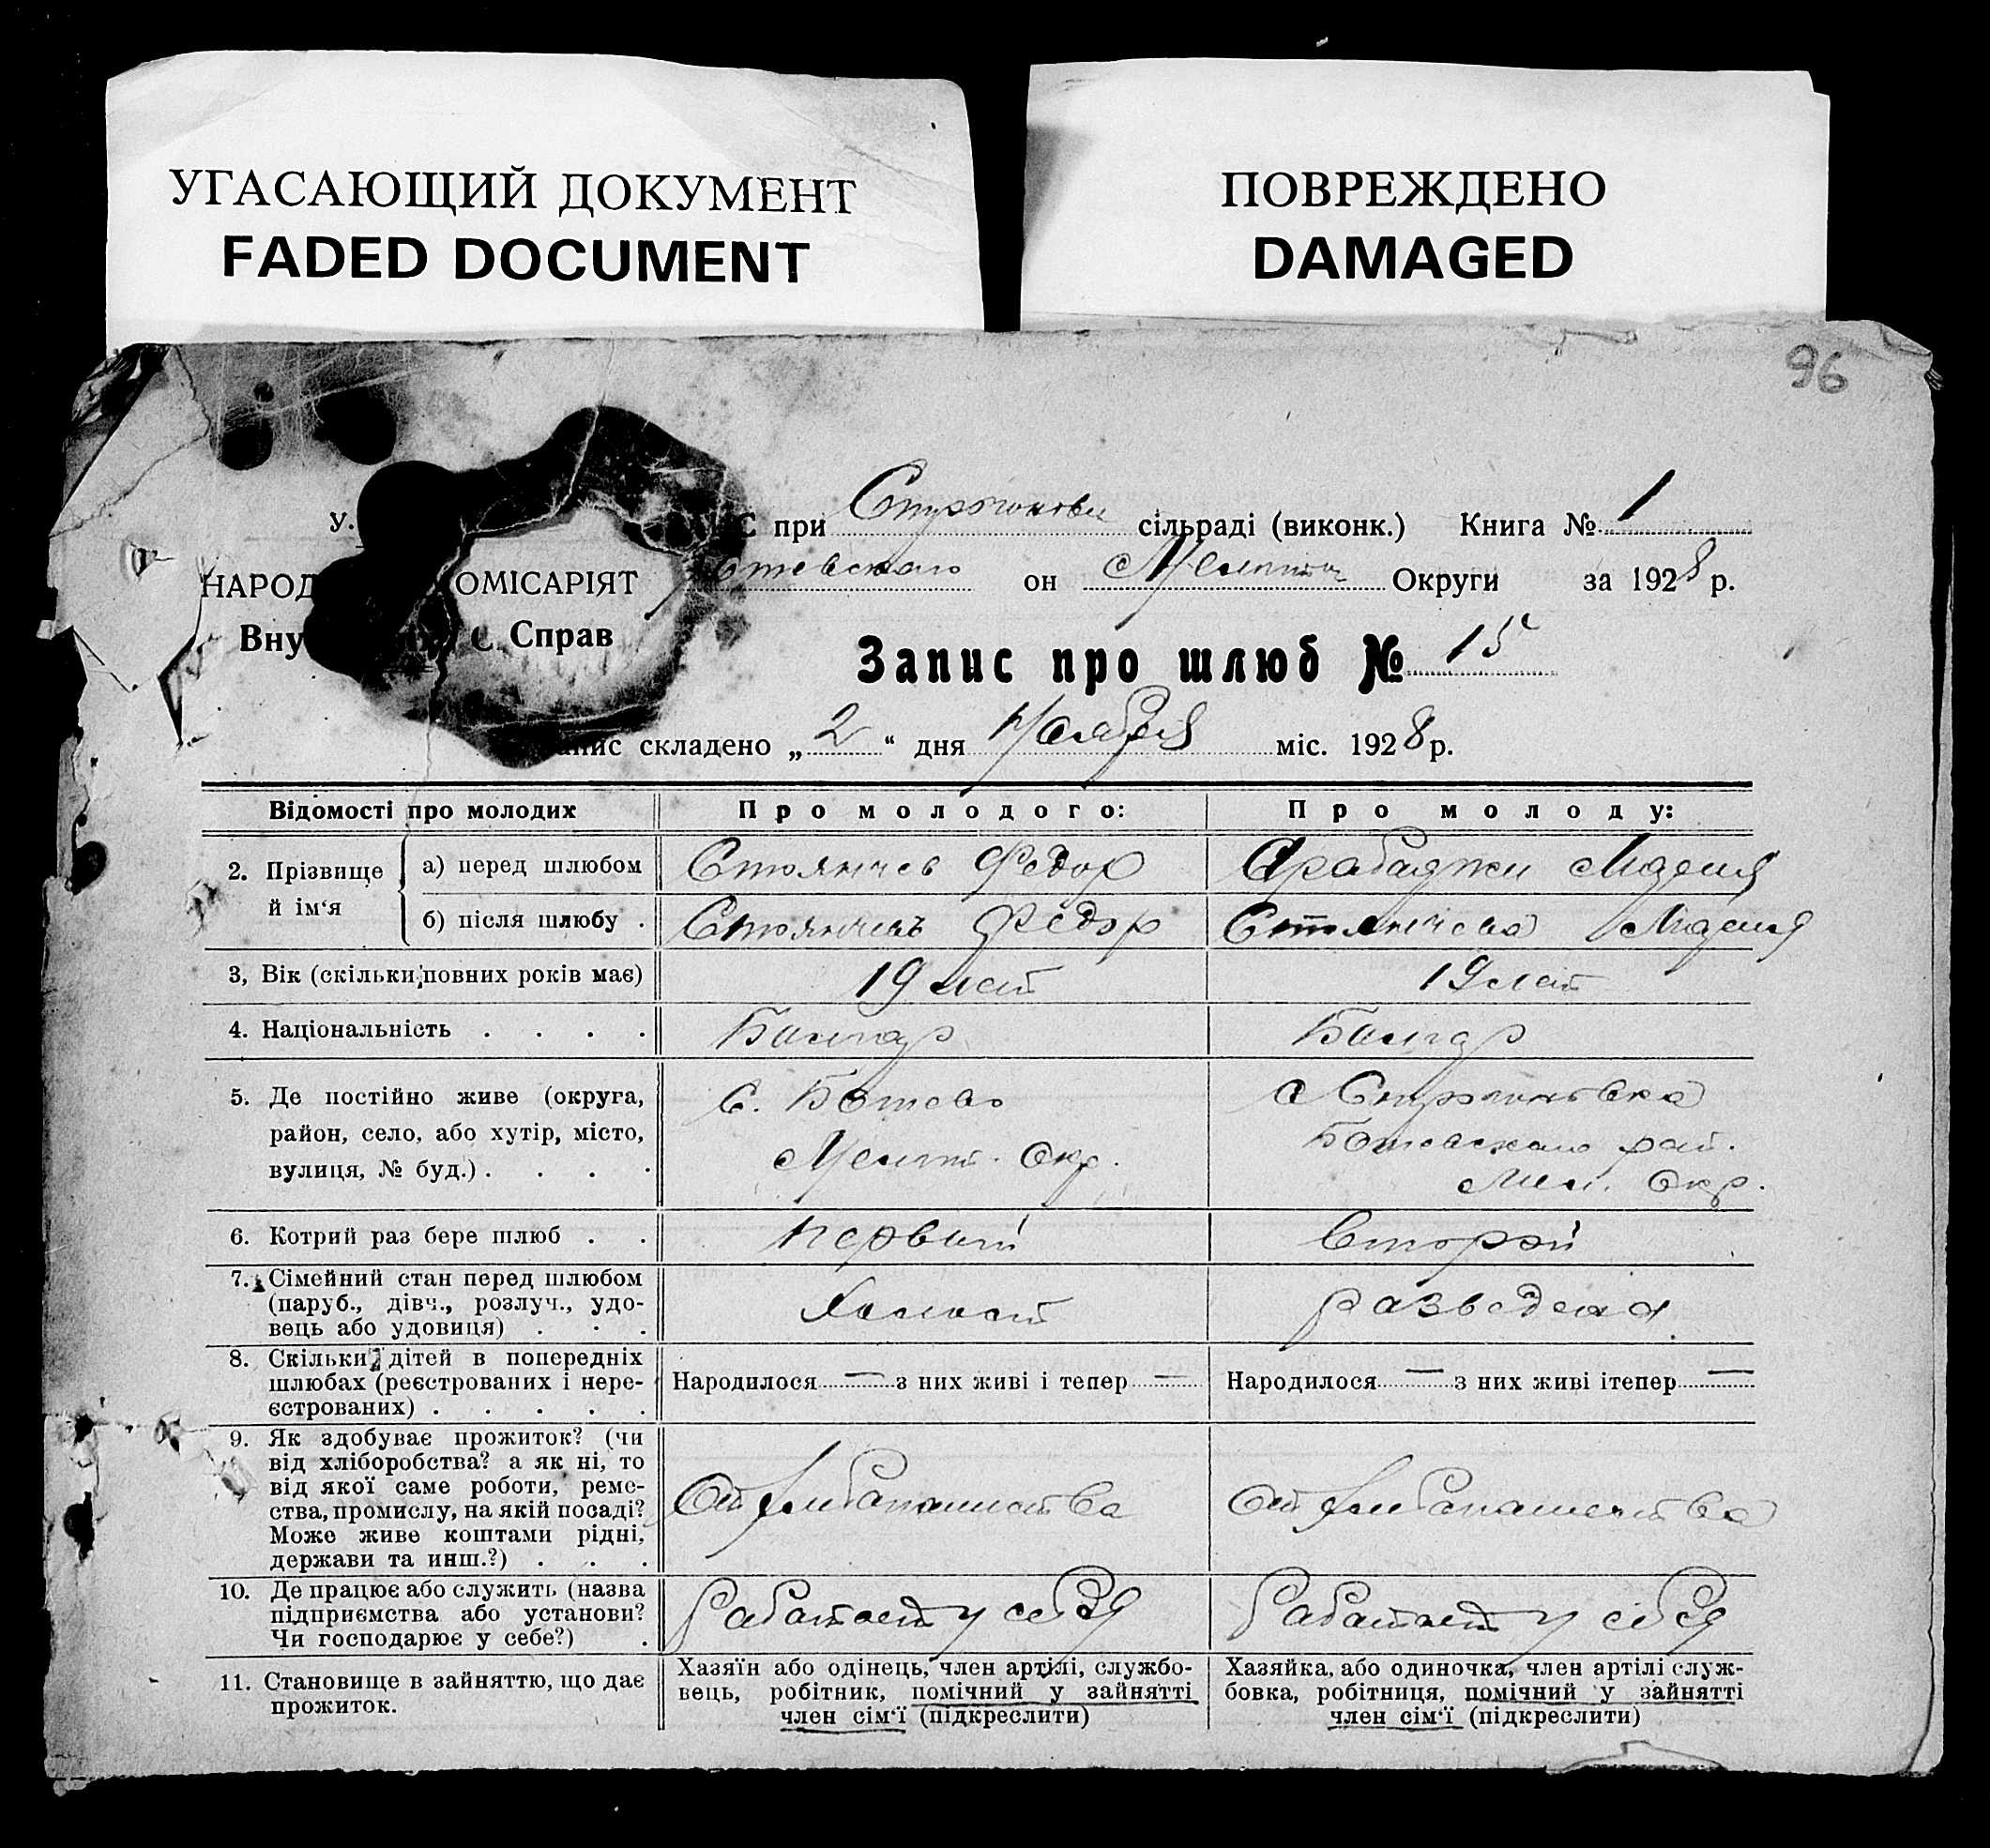 УГАСАЮЩИЙ ДОКУМЕНТ
FADED DOCUMENT
ПОВРЕЖДЕНО
DAMAGED
96
У.
С при Строгоновк сільраді (виконк.) Книга № 1
НАРОД ОМІСАРІЯТ
он Мелитп Округи за 1928 р.
Вну Справ
Запис про шлюб № 15
складено „2“ дня Ноября міс. 1928 р.
Відомості про молодих
Про молодого:
Про молоду:
2. Прізвище й ім‘я
а) перед шлюбом
Стоянчев Федор
Арабаджи Лидия
б) після шлюбу .
Стоянчевъ Федор
Стоянчева Лидия
3, Вік (скільки повних років має)
19 лет
19 лет
4. Національність . . . .
Болгар
Болгар
5. Де постійно живе (округа,
район, село, або хутір, місто,
вулиця, № буд.) . . . .
С. Ботево
Мелит. Окр.
с Строгоновка
Ботевского рай.
Мел. Окр.
6. Котрий раз бере шлюб . .
первый
Второй
7. Сімейний стан перед шлюбом
(паруб., дівч., розлуч., удо-
вець або удовиця) . . .
Холост
разведена
8. Скільки дітей в попередніх
шлюбах (реєстрованих і нере-
єстрованих) . . . . .
Народилося — з них живі і тепер —
Народилося — з них живі ітепер —
9. Як здобуває прожиток? (чи
від хліборобства? а як ні, то
від якої саме роботи, реме-
ства, промислу, на якій посаді?
Може живе коштами рідні,
держави та инш.?) . . .
От хлебопашества
От хлебопашества
10. Де працює або служить (назва
підприємства або установи?
Чи господарює у себе?) .
Работает у себя
Работает у себя
11. Становище в зайняттю, що дає
прожиток.
Хазяїн або одінець, член артілі, службо-
вець, робітник, помічний у зайнятті
член сім‘ї (підкреслити)
Хазяйка, або одиночка, член артілі служ-
бовка, робітниця, помічний у зайнятті
член сім‘ї (підкреслити)